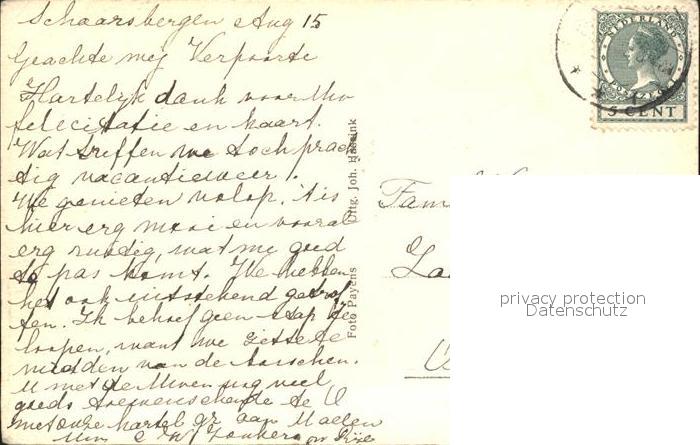 Schaarsbergen Aug 15
Geachte mej Verpoorte
Hartelijk dank voor Uw
felicitatie en kaart.
Wat treffen we toch prach
tig vacantieweer!
We genieten volop. 't is
hier erg mooi en vooral
erg rustig, wat mij goed
te pas komt. We hebben
het ook uitstekend getrof
fen. Ik behoef geen stap te
loopen, want we zitten te
midden van de bosschen.
U met de Uwen nog veel
goeds toewenschende te U
met onze hartel gr aan U allen
Uw
Foto Payens Uitg. Joh.
NEDERLAND
5 CENT
Fam
privacy protection
Datenschutz